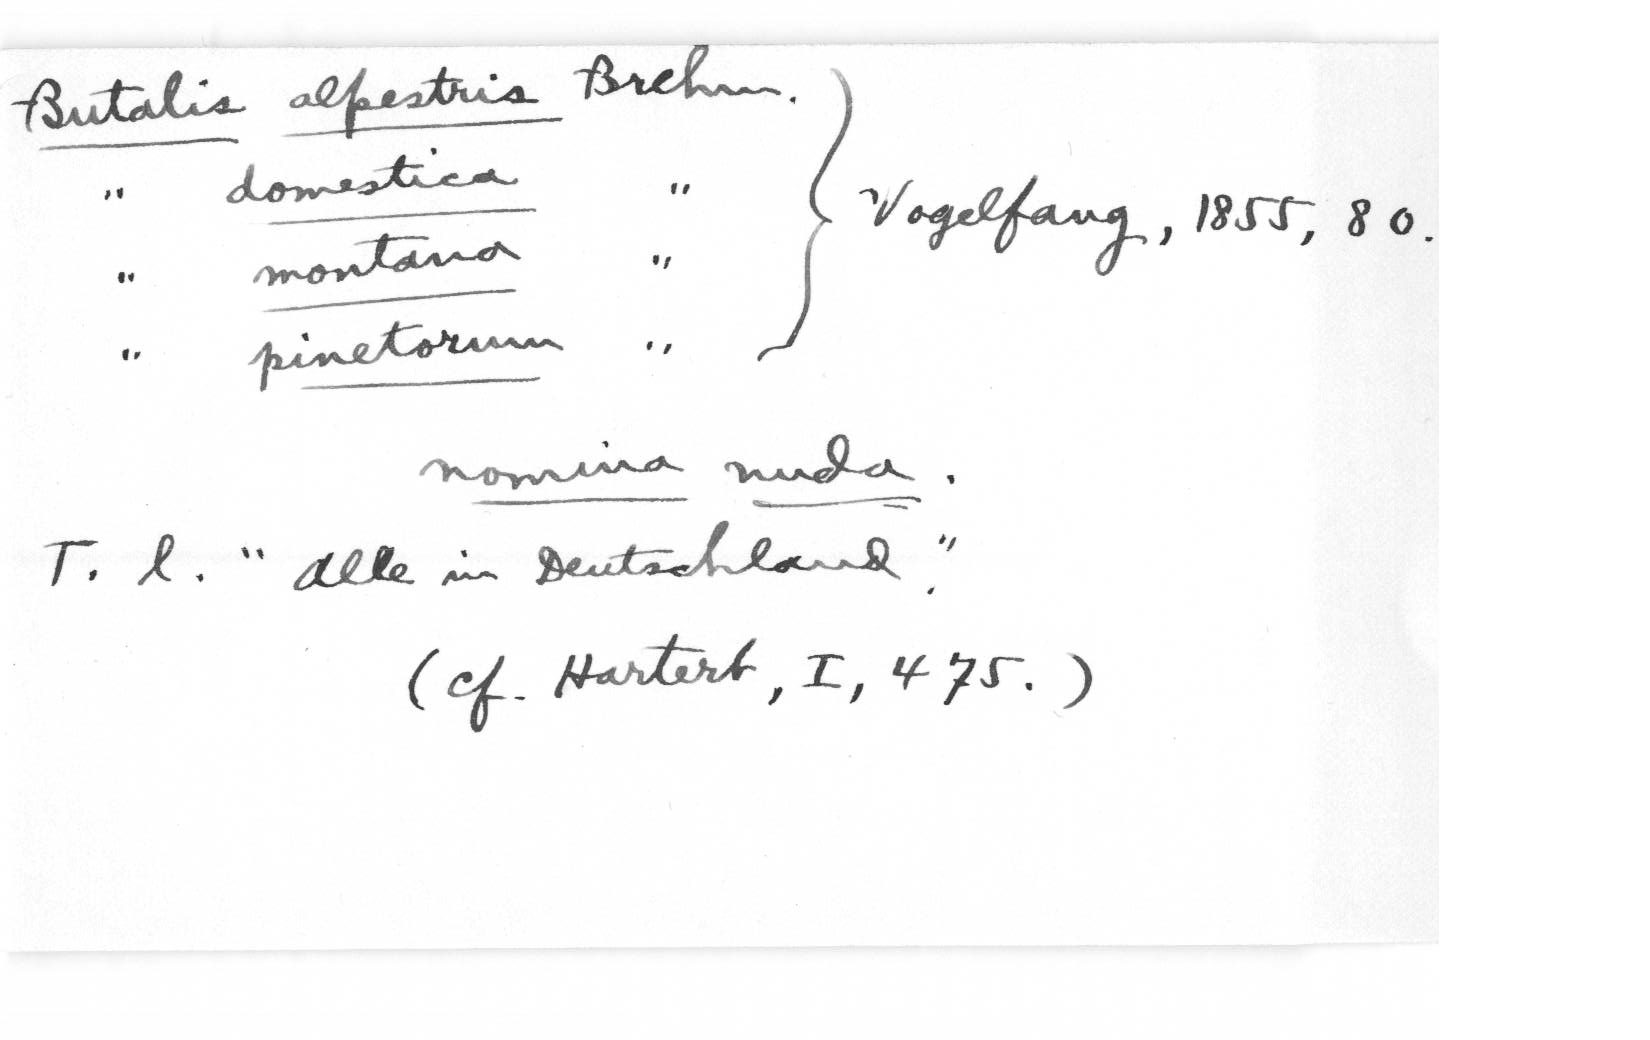 Butalis alpestris Brehm.
" domestica "
" montana "
" pinetorum "
Vogelfang, 1855, 80.
nomina nuda.
T. l. "Alle in Deutschland."
(cf. Hartert, I, 475.)